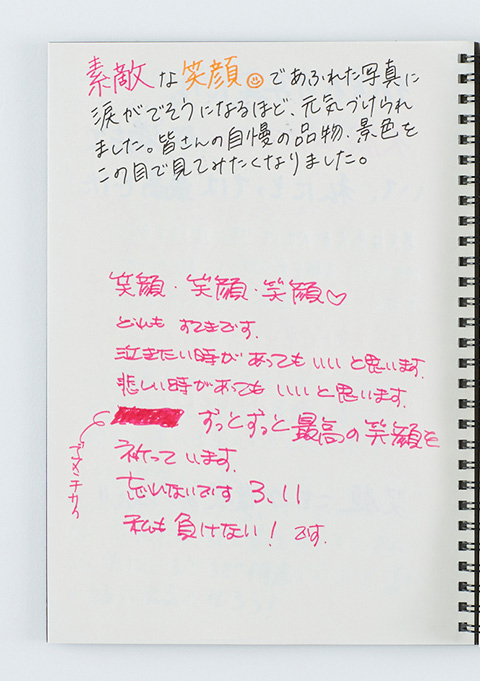 素敵な笑顔であふれた写真に
涙がでそうになるほど、元気づけられ
ました。皆さんの自慢の品物、景色を
この目で見てみたくなりました。
笑顔・笑顔・笑顔♡
どれも すてきです。
泣きたい時が あってもいいと思います。
悲しい時があっても いいと思います。
ずっとずっと最高の笑顔を
祈っています。
忘れないです 3.11
私も負けない! です。